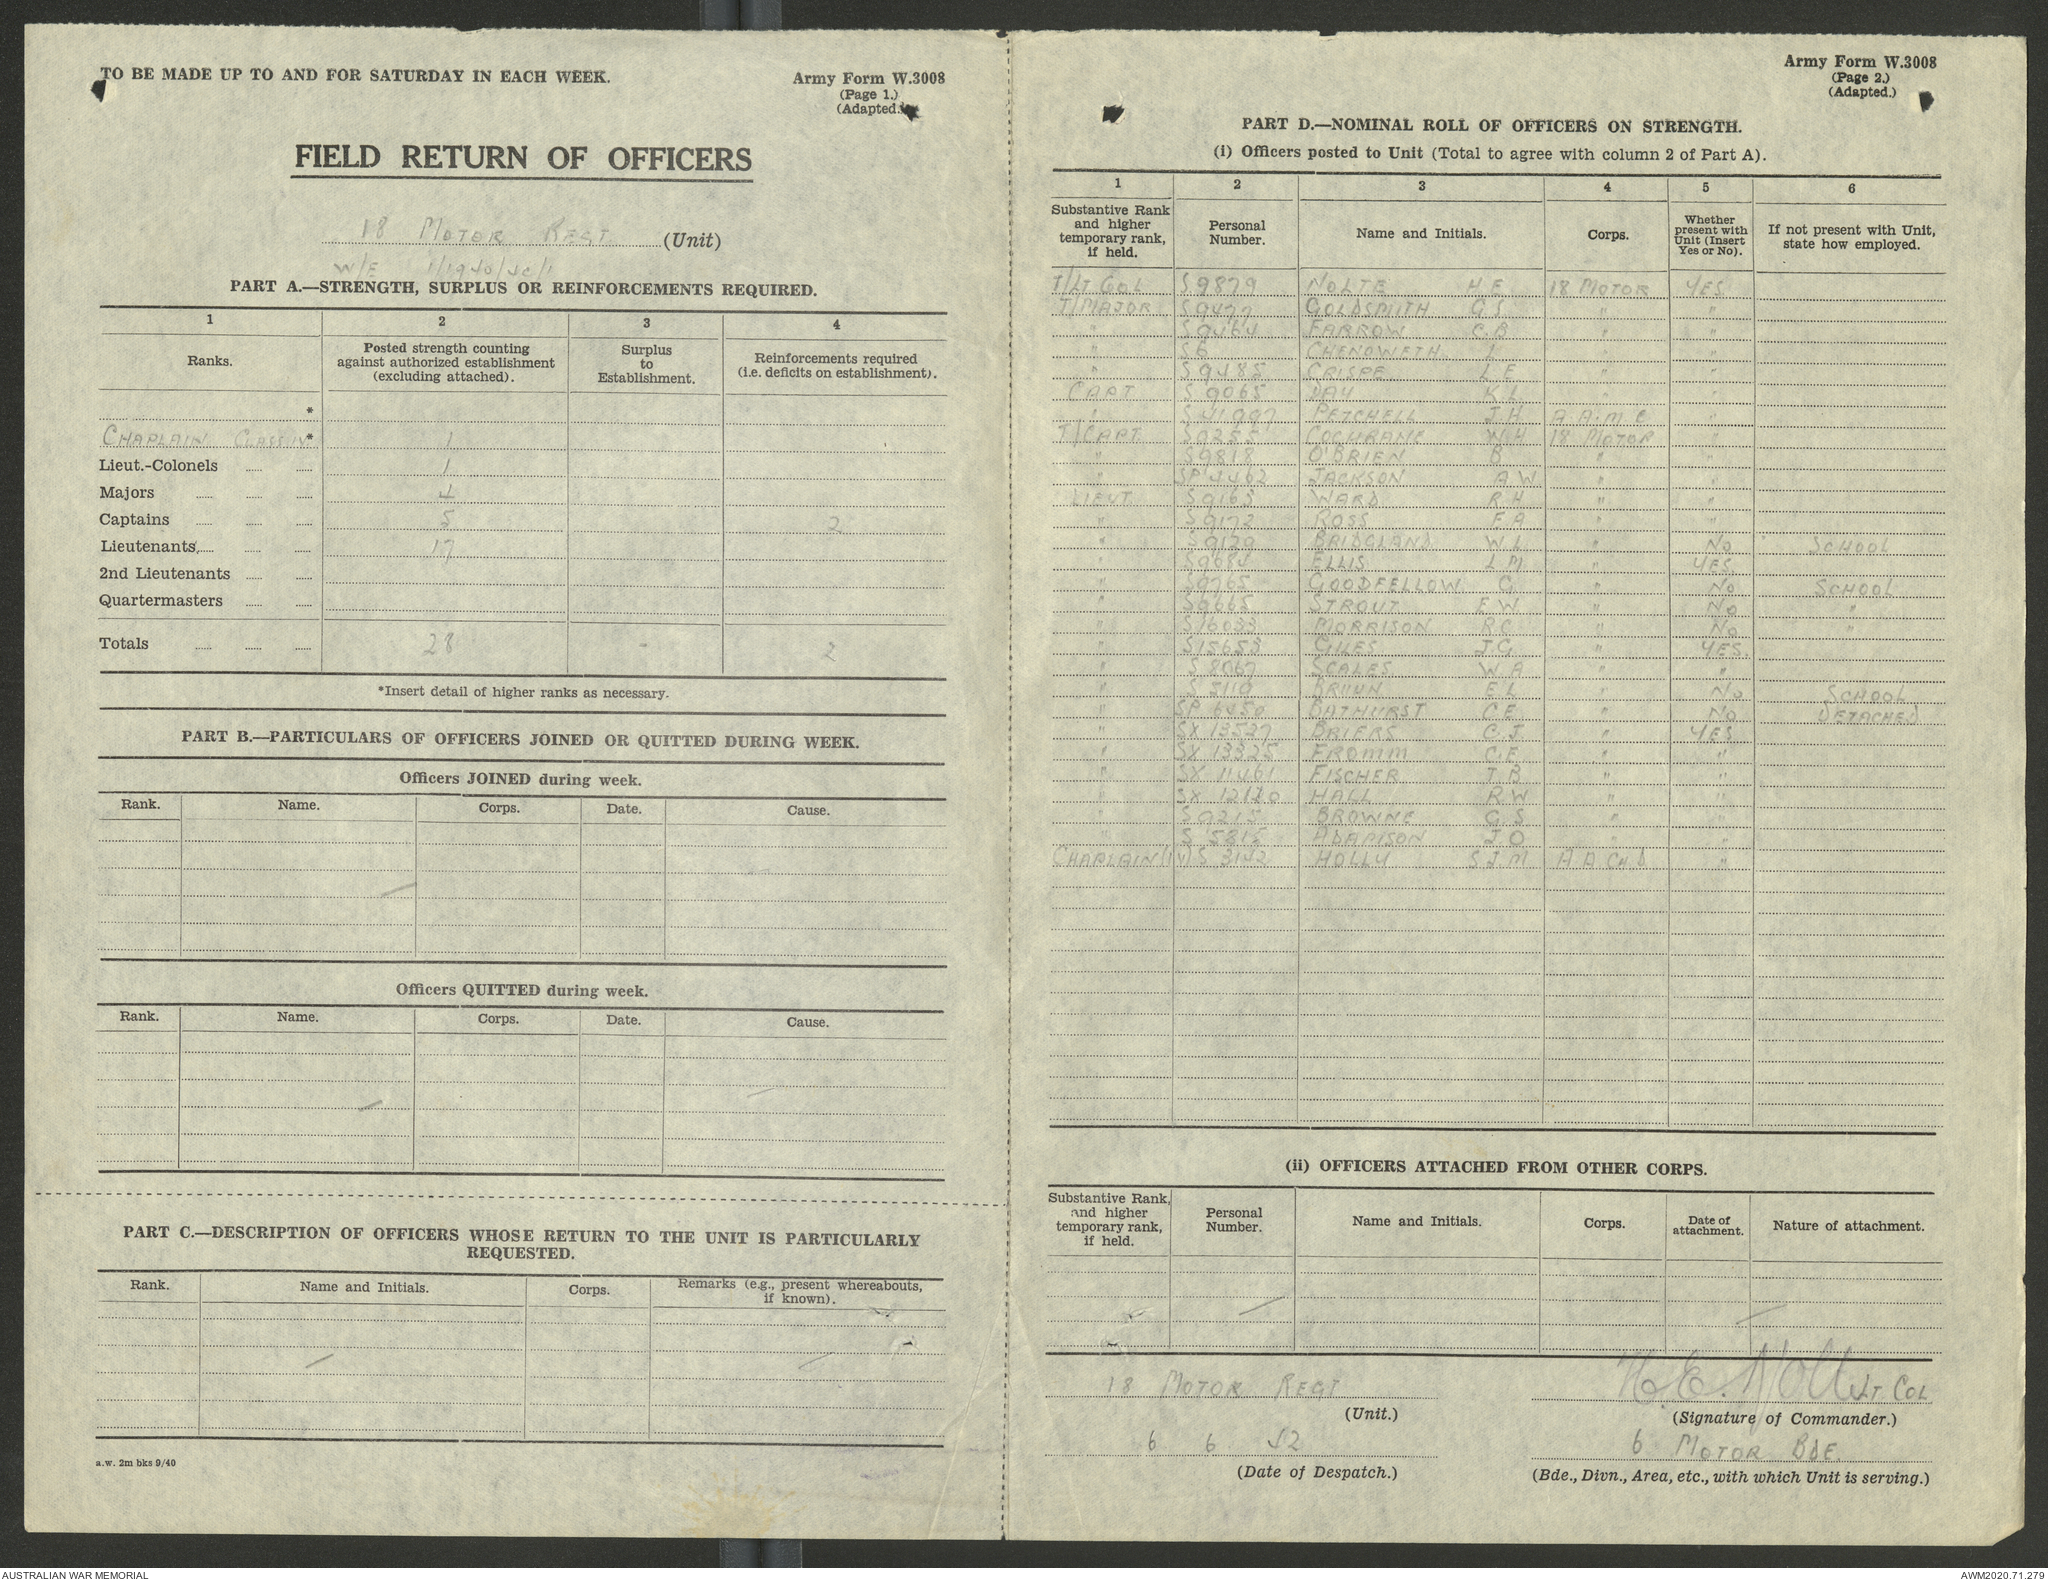 TO BE MADE UP TO AND FOR SATURDAY IN EACH WEEK.
Army Form W.3008
(Page 1.)
(Adapted.)
FIELD RETURN OF OFFICERS
18 MOTOR REGT (Unit)
W/E 1/1940/40/1
PART A.—STRENGTH, SURPLUS OR REINFORCEMENTS REQUIRED.
1 2 3 4
Ranks. Posted strength counting against authorized establishment (excluding attached). Surplus to Establishment. Reinforcements required (i.e. deficits on establishment).
*
CHAPLAIN CLASS IV* 1
Lieut.-Colonels 1
Majors 4
Captains 5 2
Lieutenants 17
2nd Lieutenants
Quartermasters
Totals 28 - 2
*Insert detail of higher ranks as necessary.
PART B.—PARTICULARS OF OFFICERS JOINED OR QUITTED DURING WEEK.
Officers JOINED during week.
Rank. Name. Corps. Date. Cause.
Officers QUITTED during week.
Rank. Name. Corps. Date. Cause.
PART C.—DESCRIPTION OF OFFICERS WHOSE RETURN TO THE UNIT IS PARTICULARLY
REQUESTED.
Rank. Name and Initials. Corps. Remarks (e.g., present whereabouts, if known).
a.w. 2m bks 9/40
Army Form W.3008
(Page 2.)
(Adapted.)
PART D.—NOMINAL ROLL OF OFFICERS ON STRENGTH.
(i) Officers posted to Unit (Total to agree with column 2 of Part A).
1 2 3 4 5 6
Substantive Rank and higher temporary rank, if held. Personal Number. Name and Initials. Corps. Whether present with Unit (Insert Yes or No). If not present with Unit, state how employed.
T/LT COL S9879 NOLTE H E 18 MOTOR YES
T/MAJOR S9477 GOLDSMITH G S " "
" S9464 FARROW C.B " "
" S6 CHENOWETH L " "
" S9485 CRISPE L E " "
CAPT S9065 DAY K L " "
" S41997 PETCHELL J.H A.A.M.C "
T/CAPT S9255 COCHRANE W H 18 MOTOR "
" S9818 O'BRIEN B " "
" SP4462 JACKSON A W " "
LIEUT S9165 WARD R H " "
" S9172 ROSS F A " "
" S9129 BRIDGLAND W L " No SCHOOL
" S9684 ELLIS L M " YES
" S9765 GOODFELLOW G " No SCHOOL
" S9665 STROUT E W " No "
" S16033 MORRISON R C " No "
" S15653 GILES J G " YES
" S 8067 SCALES W A " "
" S 2110 BRUUN E L " No SCHOOL
" SP 6450 BATHURST C E " No DETACHED
" SX 13527 BRIERS C.J " YES
" SX 13325 FROMM C.E " "
" SX 11461 FISCHER J B " "
" SX 12120 HALL R.W " "
" S9215 BROWNE G S " "
" S 5815 ADAMSON J.O " "
CHAPLAIN (IV) S 3142 HOLLY S J M A A CH D "
(ii) OFFICERS ATTACHED FROM OTHER CORPS.
Substantive Rank, and higher temporary rank, if held. Personal Number. Name and Initials. Corps. Date of attachment. Nature of attachment.
18 MOTOR REGT
(Unit.)
H.E. Nolte LT. COL
(Signature of Commander.)
6 6 42
(Date of Despatch.)
6 MOTOR BDE.
(Bde., Divn., Area, etc., with which Unit is serving.)
AUSTRALIAN WAR MEMORIAL
AWM2020.71.279